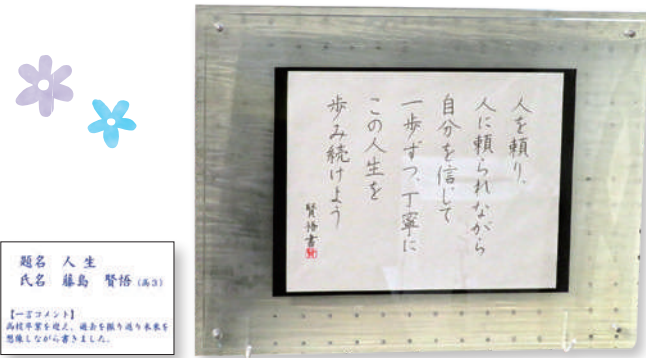 人を頼り、
人に頼られながら
自分を信じて
一歩ずつ、丁寧に
この人生を
歩み続けよう
賢悟書
題名 人生
氏名 藤島 賢悟(高3)
【一言コメント】
高校卒業を迎え、過去を振り返り未来を
想像しながら書きました。